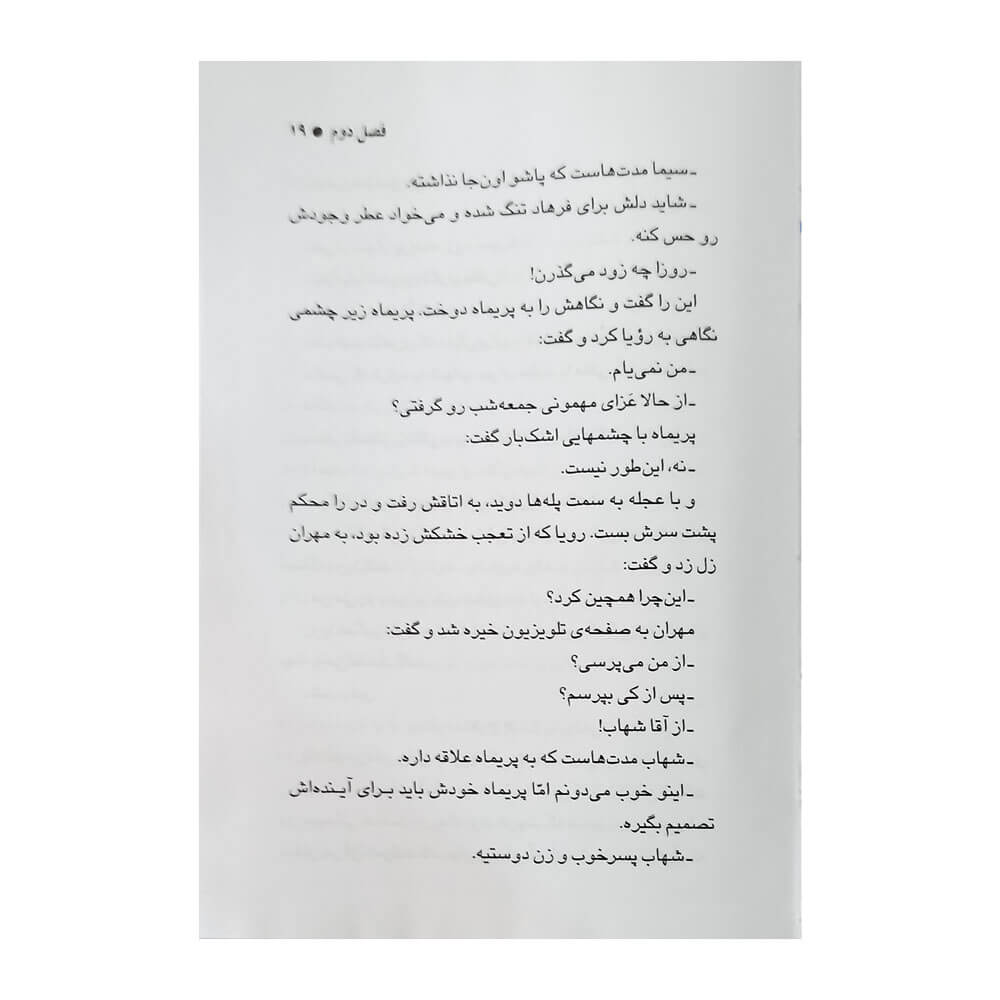 فصل دوم ● ۱۹
ـ سیما مدت‌هاست که پاشو اون‌جا نذاشته.
ـ شاید دلش برای فرهاد تنگ شده و می‌خواد عطر وجودش
رو حس کنه.
ـ روزا چه زود می‌گذرن!
این را گفت و نگاهش را به پریماه دوخت. پریماه زیر چشمی
نگاهی به رؤیا کرد و گفت:
ـ من نمی‌یام.
ـ از حالا عَزای مهمونی جمعه‌شب رو گرفتی؟
پریماه با چشمهایی اشک‌بار گفت:
ـ نه، این‌طور نیست.
و با عجله به سمت پله‌ها دوید، به اتاقش رفت و در را محکم
پشت سرش بست. رویا که از تعجب خشکش زده بود، به مهران
زل زد و گفت:
ـ این‌چرا همچین کرد؟
مهران به صفحه‌ی تلویزیون خیره شد و گفت:
ـ از من می‌پرسی؟
ـ پس از کی بپرسم؟
ـ از آقا شهاب!
ـ شهاب مدت‌هاست که به پریماه علاقه داره.
ـ اینو خوب می‌دونم امّا پریماه خودش باید برای آینده‌اش
تصمیم بگیره.
ـ شهاب پسرخوب و زن دوستیه.